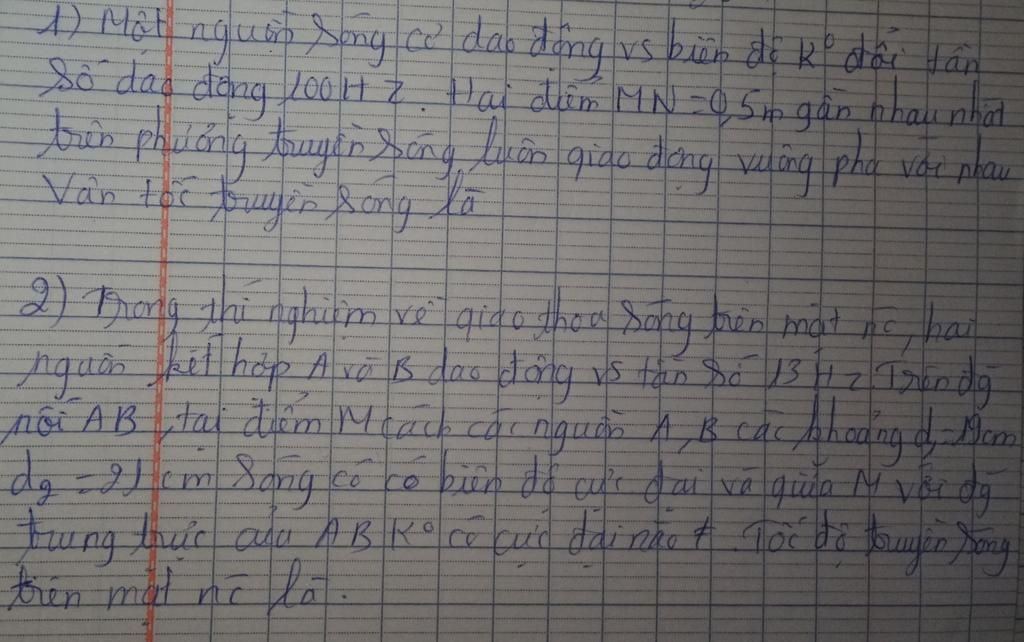 1) Một nguồn sóng cơ dao động vs biên độ kº đổi tần
số dao động 100Hz. Hai điểm MN = 0,5m gần nhau nhất
trên phương truyền sóng luôn giao động vuông pha với nhau
Vận tốc truyền sóng là
2) Trong thí nghiệm về giao thoa sóng trên mặt nc, hai
nguồn kết hợp A và B dao động vs tần số 13Hz. Trên đg
nối AB, tại điểm M cách các nguồn A, B các khoảng d₁=19cm
d₂ = 21cm sóng có có biên độ cực đại và giữa M với đg
trung trực của AB kº có cực đại nào ≠. Tốc độ truyền sóng
trên mặt nc là.